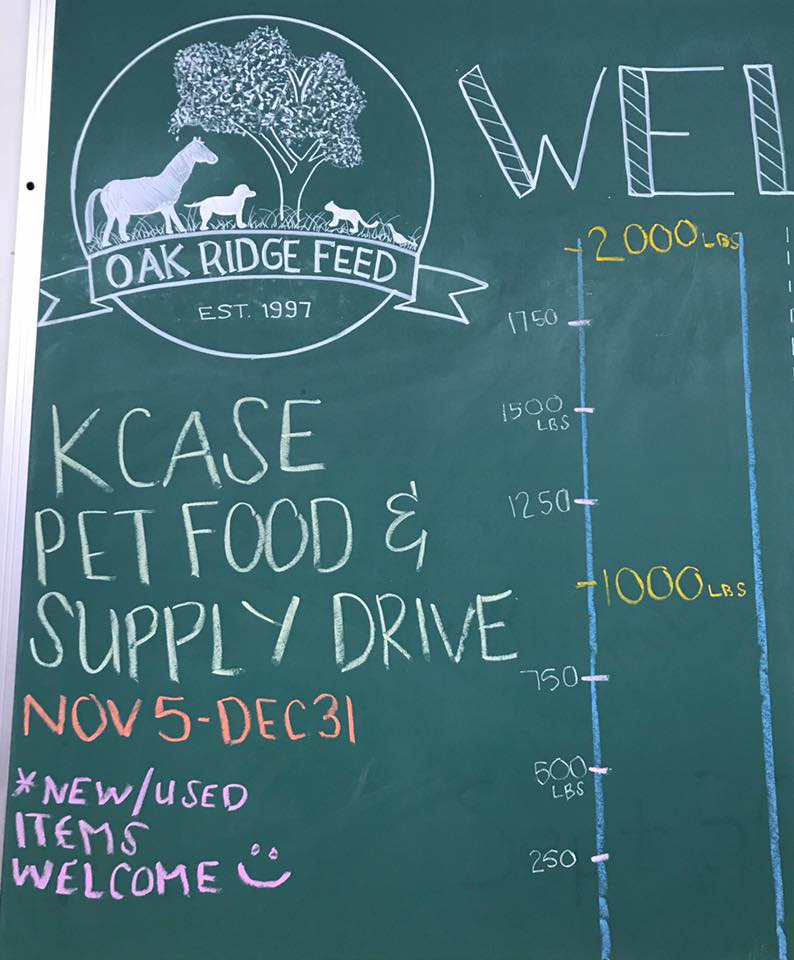 OAK RIDGE FEED
EST. 1997
KCASE
PET FOOD &
SUPPLY DRIVE
NOV 5-DEC 31
*NEW/USED
ITEMS
WELCOME
WEL
2000 LBS
1750
1500
LBS
1250
1000 LBS
750
500
LBS
250